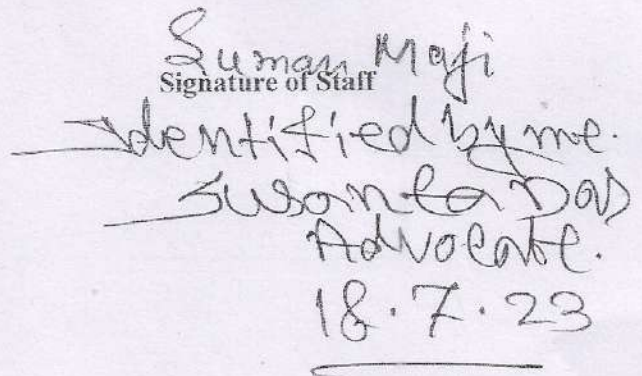 Suman Maji
Signature of Staff
Identified by me.
Susanta Das
Advocate.
18.7.23